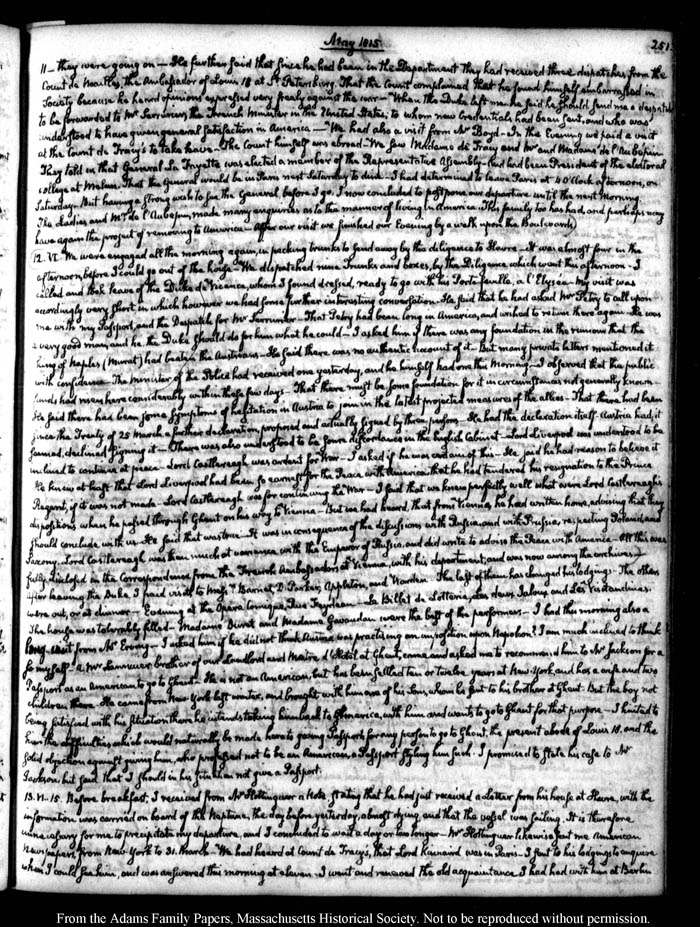 May 1815.
251.
11— they were going on— He further said that since he had been in the Department they had received three dispatches from the
Count de Noailles, the Ambassador of Louis 18 at St Petersburg. That the Count complained that he found himself embarrassed in
Society because he heard opinions expressed very freely against the war— When the Duke left me he said he should send me a dispatch
to be forwarded to Mr Serrurier, the French Minister in the United States, to whom new Credentials had been sent, and who was
understood to have given general satisfaction in America.— We had also a visit from Mr Boyd— In the Evening we paid a visit
at the Count de Tracy's to take leave— The Count himself was abroad— We saw Madame de Tracy and Mr and Madame de l'Aubepin.
They told us that General La Fayette was elected a member of the Representative Assembly— And had been President of the electoral
college at Melun. That the General would be in Paris next Saturday to dine— I had determined to leave Paris at 4 O'Clock afternoon, on
Saturday. But having a strong wish to see the General, before I go, I now concluded to postpone our departure until the next morning.
The Ladies and Mr de l'Aubepin, made many enquiries as to the manner of living in America— This family too has had, and perhaps may
have again the project of removing to America— After our visit we finished our Evening by a walk upon the Boulevards.
12. VI. We were engaged all the morning again, in packing trunks to send away by the diligence to Havre— It was almost four in the
afternoon, before I could go out of the house— We dispatched nine Trunks and boxes, by the Diligence, which went this afternoon— I
called and took leave of the Duke de Vicence, whom I found dressed, ready to go with his Porte-feuille, a l'Elysée— My visit was
accordingly very short, in which however we had some further interesting conversation— He said that he had asked Mr Petry to call upon
me with my Passport, and the Despatch for Mr Serrurier— That Petry had been long in America, and wished to return there again— He was
a very good man, and he, the Duke should do for him what he could— I asked him if there was any foundation in the rumour that the
king of Naples (Murat) had beaten the Austrians— He said there was no authentic account of it— But many private letters mentioned it
with confidence— The Minister of the Police had received one yesterday, and he himself had one this Morning— I observed that the public
funds had risen here considerably within these few days— That there must be some foundation for it in circumstances not generally known—
He said there had been some symptoms of hesitation in Austria to join in the latest projected measures of the allies— That there had been
since the Treaty of 25 March a further declaration, proposed and actually signed by three persons— He had the declaration itself. Austria had, it
seemed, declined signing it— There was also understood to be some discordances in the English Cabinet— Lord Liverpool was understood to be
inclined to continue at peace— Lord Castlereagh was ardent for War— I asked if he was certain of this— He said he had reason to believe it
He knew at least that Lord Liverpool had been so earnest for the Peace with America that he had tendered his resignation to the Prince
Regent, if it was not made— Lord Castlereagh was for continuing the War— I said that we knew perfectly well what were Lord Castlereagh's
dispositions when he passed through Ghent on his way to Vienna— But we had heard, that from Vienna, he had written home, advising that they
should conclude with us— He said that was true— It was in consequence of the discussions with Russia, and with Prussia, respecting Poland, and
Saxony. Lord Castlereagh was then much at variance with the Emperor of Russia, and did write to advise the Peace with America— All this was
fully disclosed in the Correspondence from the French Ambassadors at Vienna, with his department, and was now among the archives—
After leaving the Duke, I paid visits to Messrs Barnet, D. Parker, Appleton, and Warden— The last of them has changed his lodgings— The others
were out, or at dinner— Evening at the Opera Comique, Rue Feydeau— Le Billet de Lotterie, Les deux Jaloux and Les Visitandines.
The house was tolerably filled— Madame Duret and Madame Gavaudan were the best of the performers— I had this morning also a
long visit from Mr Erving— I asked him if he did not think Austria was practising an imposition upon Napoleon? I am much inclined to think
so myself— A Mr Lannuier brother of our Landlord and Maitre d'Hotel at Ghent, came, and asked me to recommend him to Mr Jackson for a
Passport as an American to go to Ghent— He is not an American, but has been settled ten or twelve years at New-York, and has a wife and two
children there. He came from New York last winter, and brought with him one of his sons, whom he sent to his brother at Ghent— But the boy not
being satisfied with his situation there, he intends taking him back to America, with him and wants to go to Ghent for that purpose— I hinted to
him the difficulties which would naturally be made here to giving Passports for any person to go to Ghent, the present abode of Louis 18. and the
solid objection against giving him, who professed not to be an American, a Passport styling him such— I promised to state his case to Mr
Jackson, but said that I should in his situation not give a Passport.
13. VI. 15. Before breakfast, I received from Mr Hottinguer a Note stating that he had just received a letter from his house at Havre, with the
information was carried on board of the Neptune, the day before yesterday, almost dying, and that the vessel was sailing. It is therefore
unnecessary for me to precipitate my departure, and I concluded to wait a day or two longer— Mr Hottinguer likewise sent me American
Newspapers from New York to 31. March— We had heard at Count de Tracy's, that Lord Kinnaird was in Paris— I sent to his lodgings to enquire
when I could see him, and was answered this morning at eleven— I went and renewed the old acquaintance I had had with him at Berlin
From the Adams Family Papers, Massachusetts Historical Society. Not to be reproduced without permission.